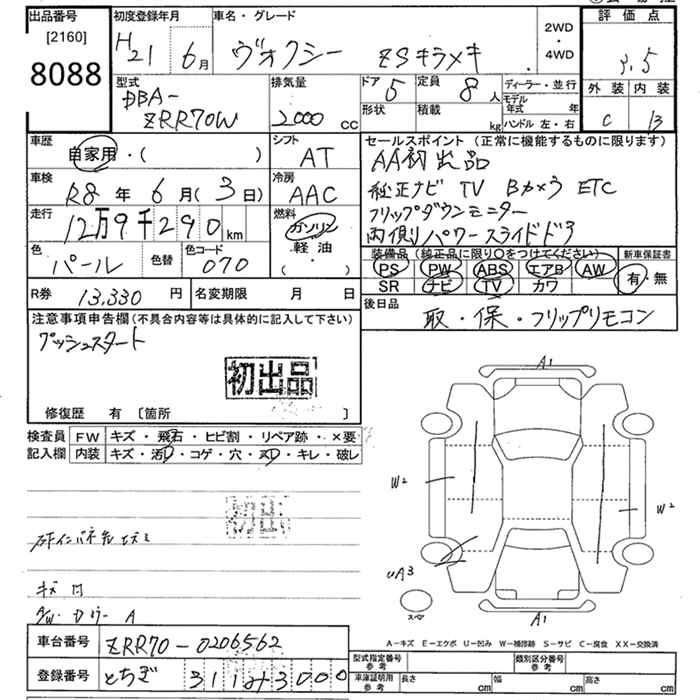 出品番号 初度登録年月 車名・グレード 評価点
[2160]
8088
H21 6月 ヴォクシー ZSキラメキ 2WD・4WD
3.5
型式 排気量 ドア 5 定員 8人 ディーラー・並行 外装 内装
DBA-
ZRR70W 2000cc 形状 積載 kg モデル年式 年 ハンドル 左・右 C B
車歴 シフト セールスポイント(正常に機能するものに限ります)
自家用・( ) AT AA初出品
車検 冷房 純正ナビ TV Bカメラ ETC
R8年 6月(3日) AAC フリップダウンモニター
走行 燃料 両側パワースライドドア
12万9千290km ガソリン
軽油・( )
色 パール 色替 色コード 070
装備品(純正品に限り○をつけてください) 新車保証書
PS PW ABS エアB AW 有・無
SR ナビ TV カワ
R券 13,330円 名変期限 月 日
後日品
取・保・フリップリモコン
注意事項申告欄(不具合内容等は具体的に記入して下さい)
プッシュスタート
初出品
修復歴 有 〔箇所 〕
検査員 FW キズ・飛石・ヒビ割・リペア跡・×要
記入欄 内装 キズ・汚D・コゲ・穴・ヌD・キレ・破レ
初出品
A1
W2
W2
UA3
スペア
A1
A-キズ E-エクボ U-凹み W-補修跡 S-サビ C-腐食 XX-交換済
車台番号 ZRR70-0206562
登録番号 とちぎ
型式指定番号 参考 類別区分番号 参考
車庫証明用 参考 長さ cm 幅 cm 高さ cm